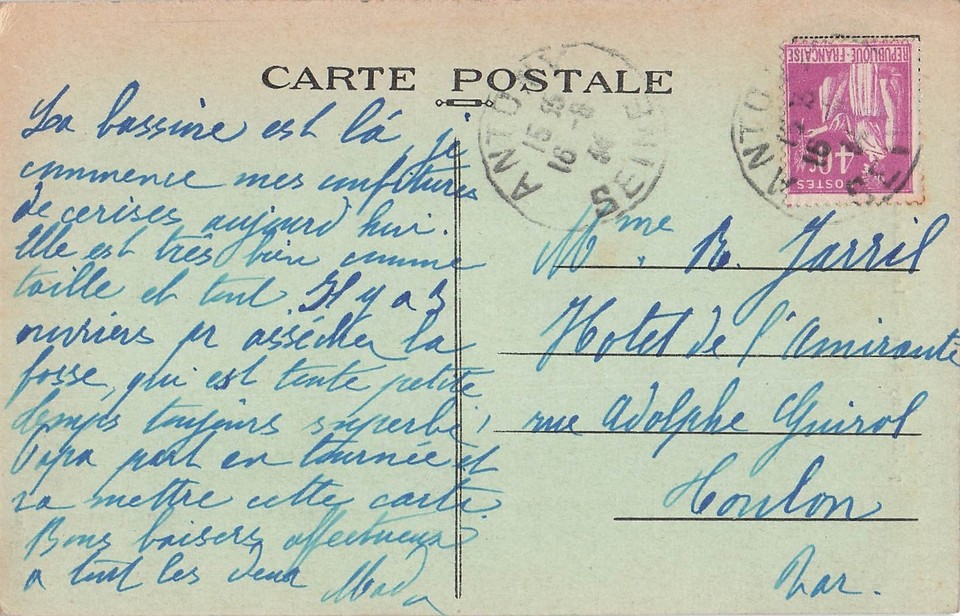 CARTE POSTALE
La bassine est là, je
commence mes confitures
de cerises aujourd'hui.
Elle est très bien comme
taille et tout Il y a 3
ouvriers pr assécher la
fosse, qui est toute petite
temps toujours superbe,
Papa part en tournée et
va mettre cette carte.
Bons baisers affectueux
a tout les deux Mada
ANTONY
15 15
16 -6
SEINE
REPUBLIQUE FRANÇAISE
POSTES
40c
ANTONY
SEINE
Mme. R. Jarril
Hotel de l'Amirauté
rue Adolphe Guirol
Toulon
Var.